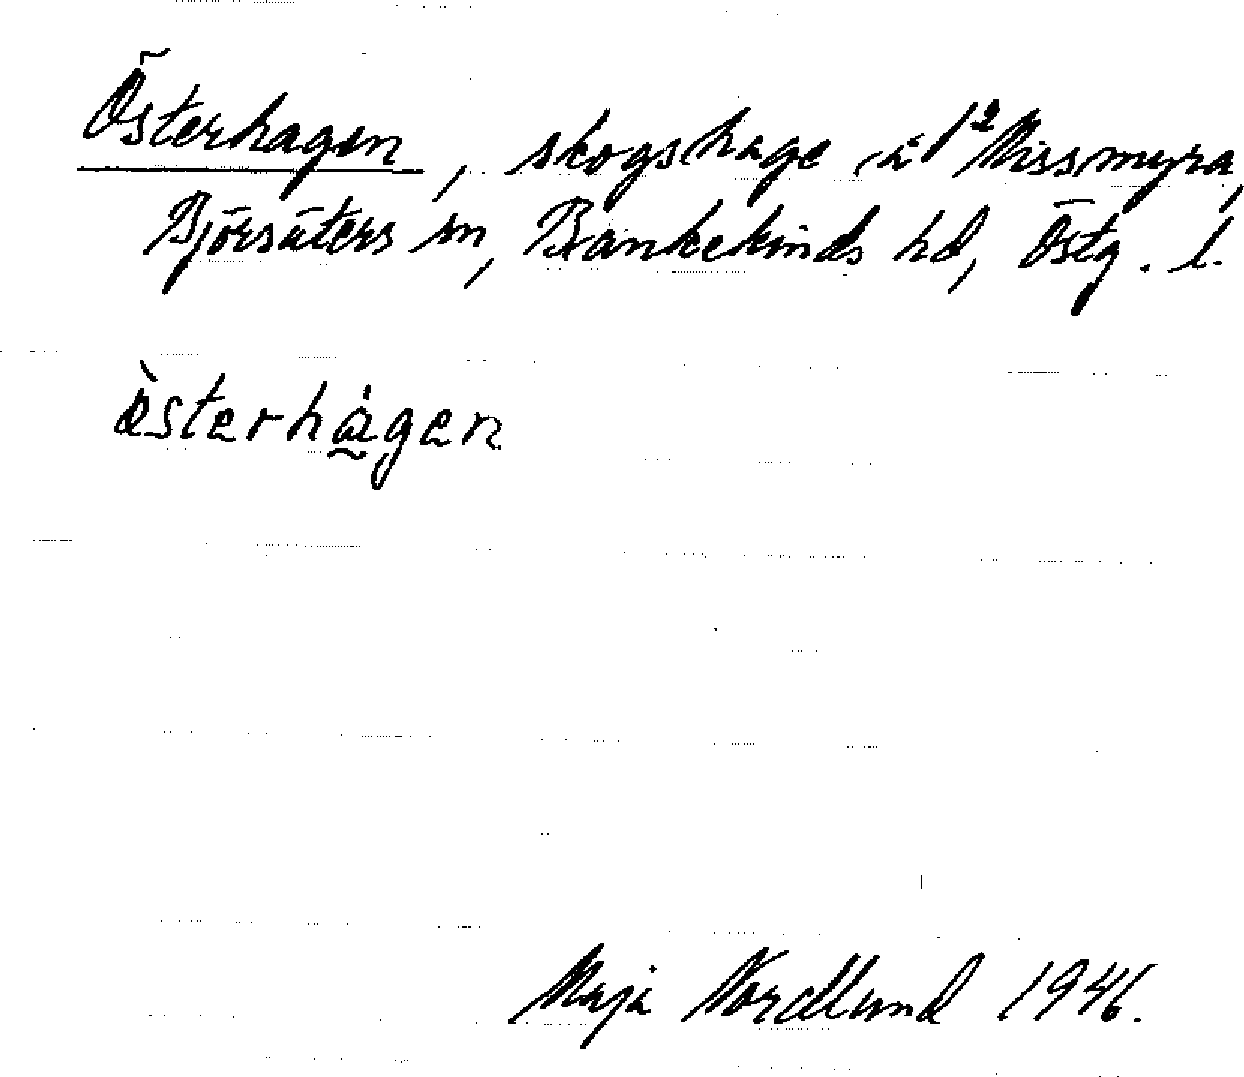 Österhagen, skogshage å 1² Missmyra,
Björsäters sn, Bankekinds hd, Östg. l.
österhagen
Maja Nordlund 1946.